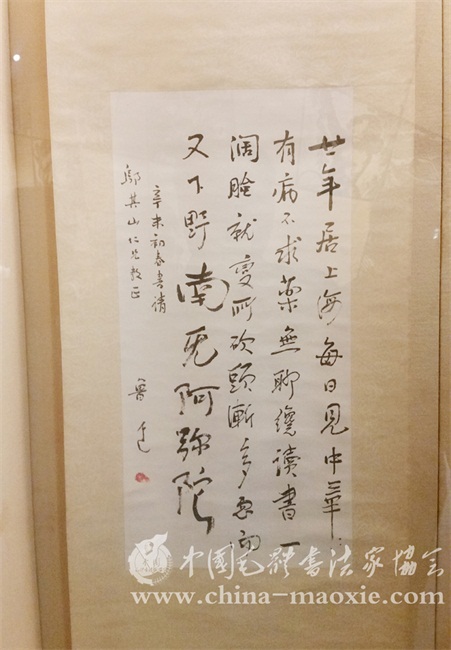 廿年居上海每日見中華
有病不求藥無聊纔讀書一
闊臉就變所砍頭漸多忽而
又下野南无阿彌陀
辛未初春書請
鄔其山仁兄教正
魯迅
中国毛体书法家協会
www.china-maoxie.com